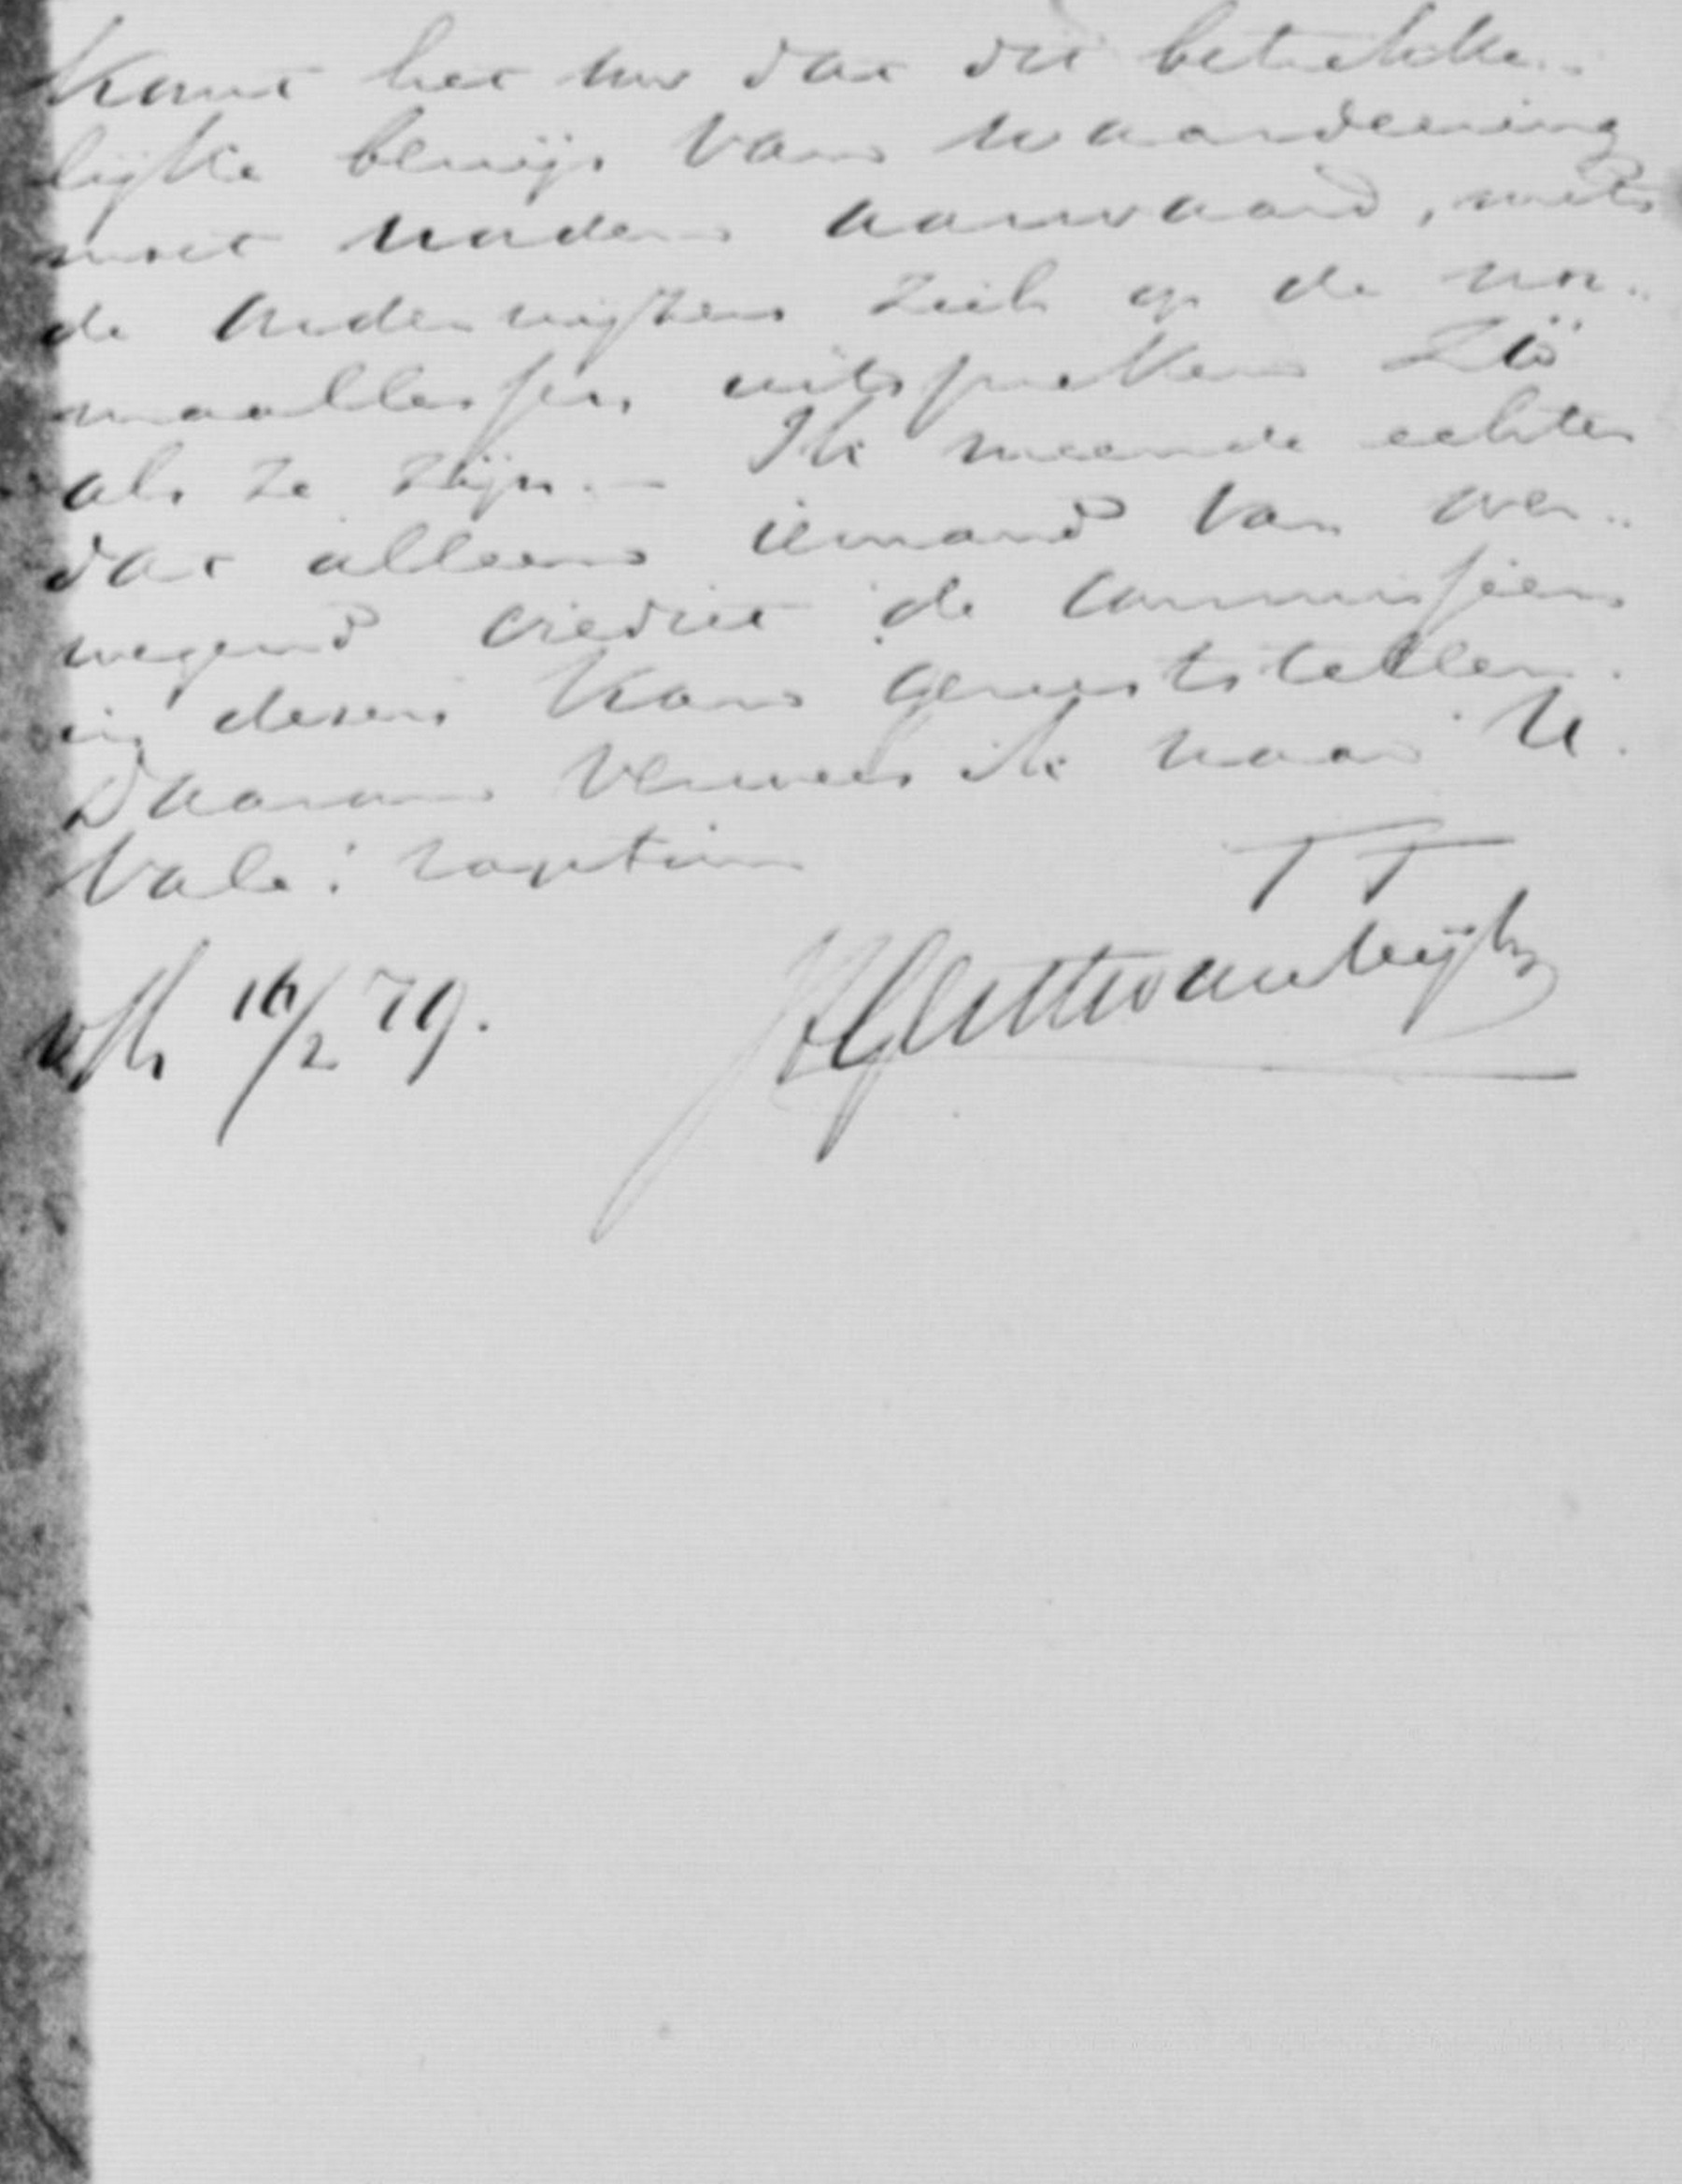 komt het mij voor dat dit betrekke-
lijke bewijs van waardeering
moet worden aanvaard, mits
de onderwijzers zich op de nor-
maallessen uitspreken zóó
als ze zijn. — Ik meende echter
dat alleen iemand van over-
wegend crediet de commissiën
in dezen kan geruststellen.
Daarom verwees ik naar U.
Vale! raptim
TT
16/2 79.